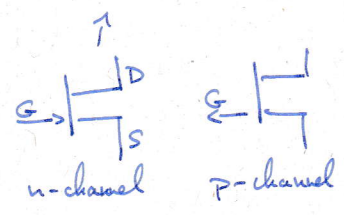 D
G
G
S
n-channel
p-channel